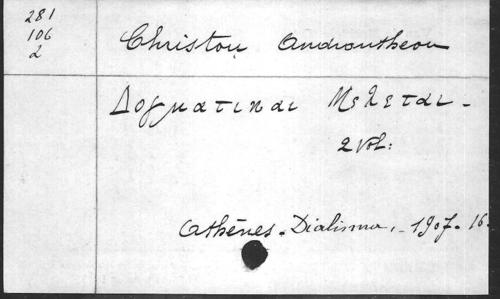 281
106
2
Christou Androutheou
Δογματικαι Μελεται -
2 Vol:
Athènes - Dialisma, - 1907 - 16.